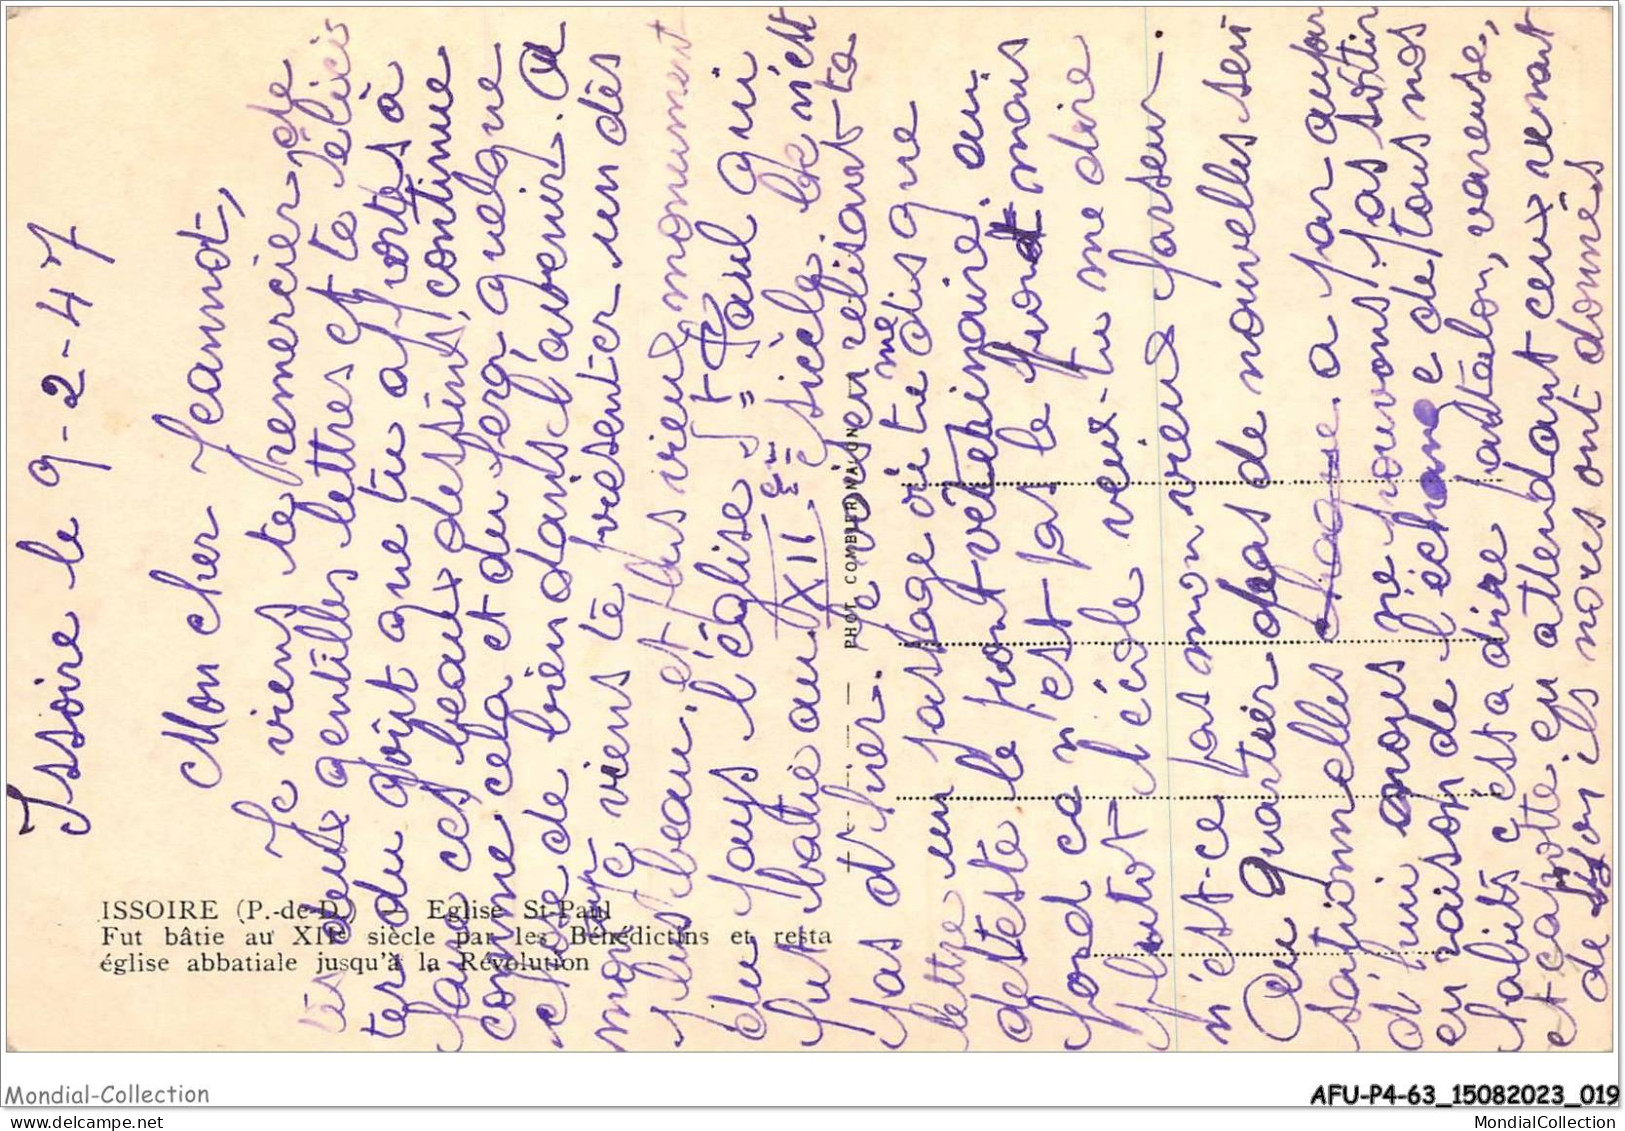 Issoire le 9-2-47
Mon cher Jeannot,
Je viens te remercier de
tes deux gentilles lettres et te félicis
ter du goût que tu apportes à
faire ces beaux dessins, continue
comme cela et du fera quelque
chose de bien dans l'avenir. A
mon tour je viens te présenter un des
plus beau, et plus vieux monument
du pays l'église St Paul qui
fut batie au XII ème siècle. Ce n'est
pas d'hier. Je viens en relisant ta
lettre un passage où tu me dis que
deteste le pont vétérinaire, au
fond ce n'est pas le pont mais
plutôt l'école veux-tu me dire
n'est-ce pas mon vieux farseur.
Au Quartier pas de nouvelles sen
sationnelles chaque a par aujour
d'hui nous ne pouvons pas sortir
en raison de l'échange de tous nos
habits c'est a dire pantalon, vareuse,
et capotte, en attendant ceux venant
de Lyon ils nous ont donnés
ISSOIRE (P.-de-D.) Eglise St-Paul
Fut bâtie au XIIe siècle par les Bénédictins et resta
église abbatiale jusqu'à la Révolution
PHOT. COMBIER MÂCON
Mondial-Collection
AFU-P4-63_15082023_019
MondialCollection